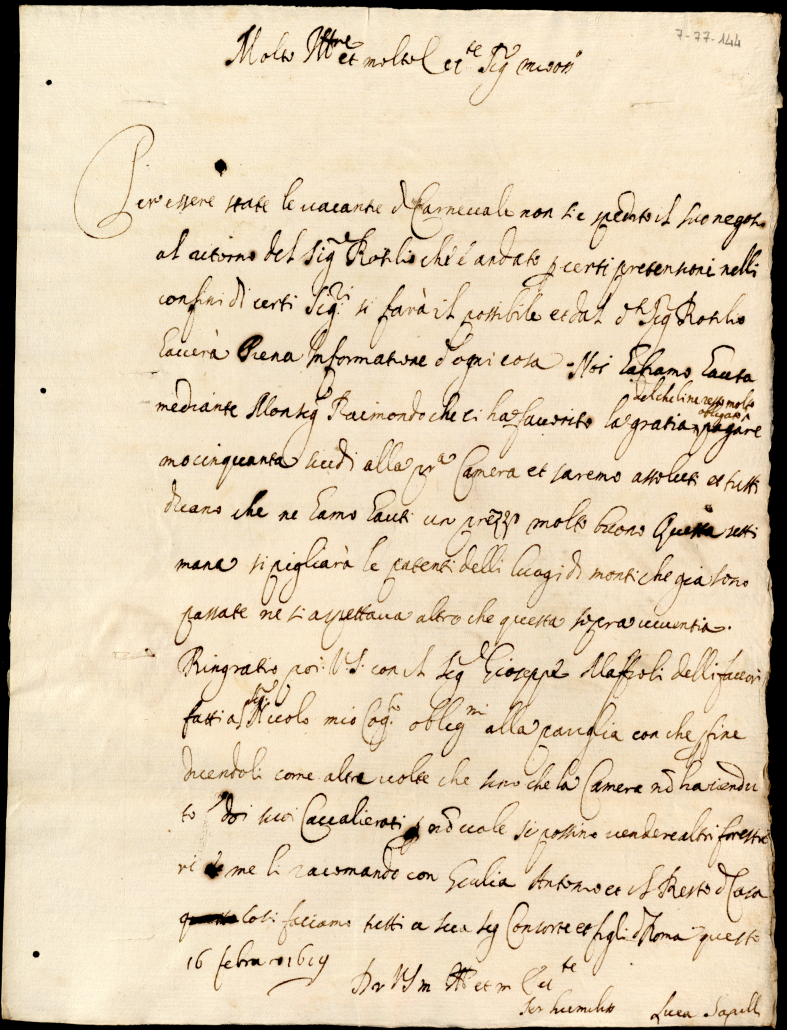 7-77-144
Molto Ill.re et molto Ecc.te Sig.r mio oss.
Per essere state le vacante d Carnevale non si e spedito il suo negoto
al ritorno del Sig.r Rotilio che é andato p certi pretensioni nelli
confini di certi Sig.ri si farà il possibile et dal d.to Sig.r Rotilio
haverà Piena Informatione d'ogni cosa. Noi habiamo hauta
del che line resto molto
obligato
mediante Monsig.r Raimondo che ci ha favorito la gratia pagare
mo cinquanta scudi alla Camera et saremo assoluti et tutti
dicano che ne hamo hauti un prezzo molto buono Questa setti
mana si pigliarà le patenti delli luogi di monti che gia sono
passate ne si aspettava altro che questa
Ringratio poi V.S. con il Sig.r Gioseppe Maffioli delli favori
fatti a Sig.r Niccolo mio Cog.to obligmi alla pariglia con che p fine
dicendoli come altre volte che sino che la Camera nõ ha vendu
to doi suoi Cavalierati nõ vole si possino vendere altri forestie
ri me li racomando con Giulia Antonio et il Resto d Casa
cosi faciamo tutti a sua sig Consorte et figli d Roma questo
16 febraro 1619
D V S m Ill et m Ecc.te
Ser humiliss
Luca